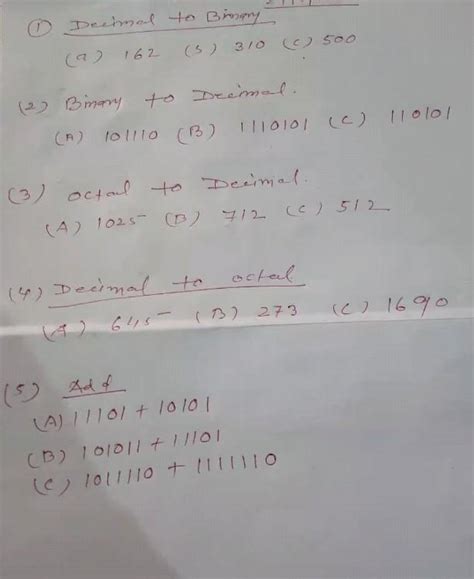 ① Decimal to Binary
(a) 162 (S) 310 (C) 500
(2) Binary to Decimal.
(A) 101110 (B) 1110101 (C) 110101
(3) octal to Decimal.
(A) 1025 (B) 712 (C) 512
(4) Decimal to octal
(A) 645 (B) 273 (C) 1690
(5) Add
(A) 11101 + 10101
(B) 101011 + 11101
(C) 1011110 + 1111110